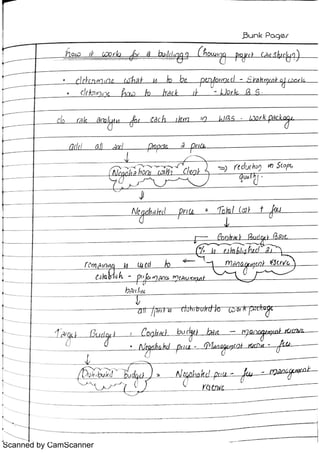 Bunk Pages
how it works for a building? (housing project case study)
• determine what is to be performed - Statement of work
• determine how to track it - Work B S.
do risk analysis for each item in WBS - work package
add all and propose a price
Negotiations with client => reduction in Scope, quality.
Negotiated price = Total cost + fee
Contract Budget Base
% is established as management reserve
remaining is used to establish - performance measurement baseline
all parts distributed to work package
Target Budget : Contract budget base - management reserve
• Negotiated price - Management reserve - fee
Distributed budget = Negotiated price - fee - management reserve
Scanned by CamScanner